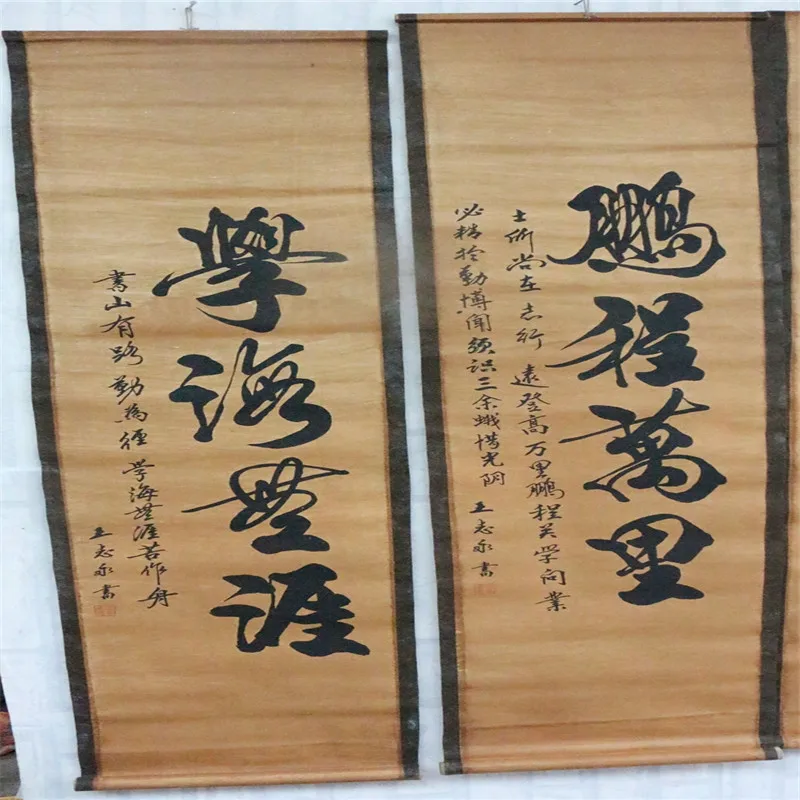 鵬程萬里
士所尚在志行遠登高万里鵬程关学问業
必精於勤博闻须识三余惜光阴
王志永書
學海無涯
書山有路勤為徑学海無涯苦作舟
王志永書